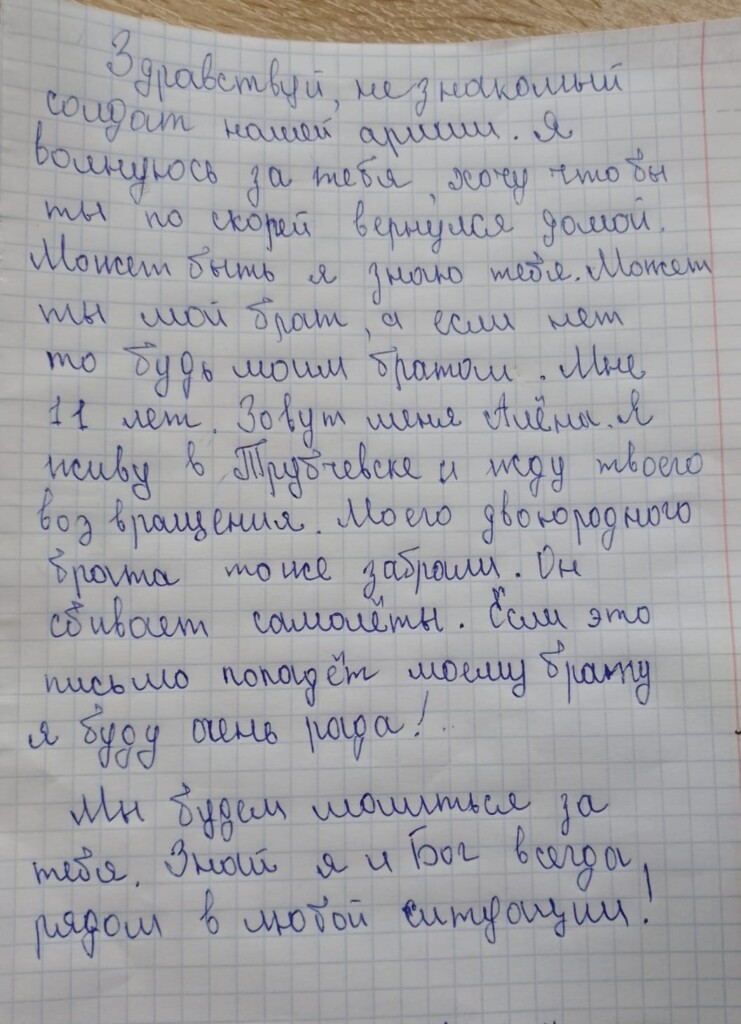 Здравствуй, незнакомый
солдат нашей армии. Я
волнуюсь за тебя, хочу что бы
ты по скорей вернулся домой.
Может быть я знаю тебя. Может
ты мой брат, а если нет
то будь моим братом. Мне
11 лет. Зовут меня Алёна. Я
живу в Трубчевске и жду твоего
воз вращения. Моего двоюродного
брата тоже забрали. Он
сбивает самолёты. Если это
письмо попадёт моему брату
я буду очень рада!
Мы будем молиться за
тебя. Знай я и Бог всегда
рядом в любой ситуации!